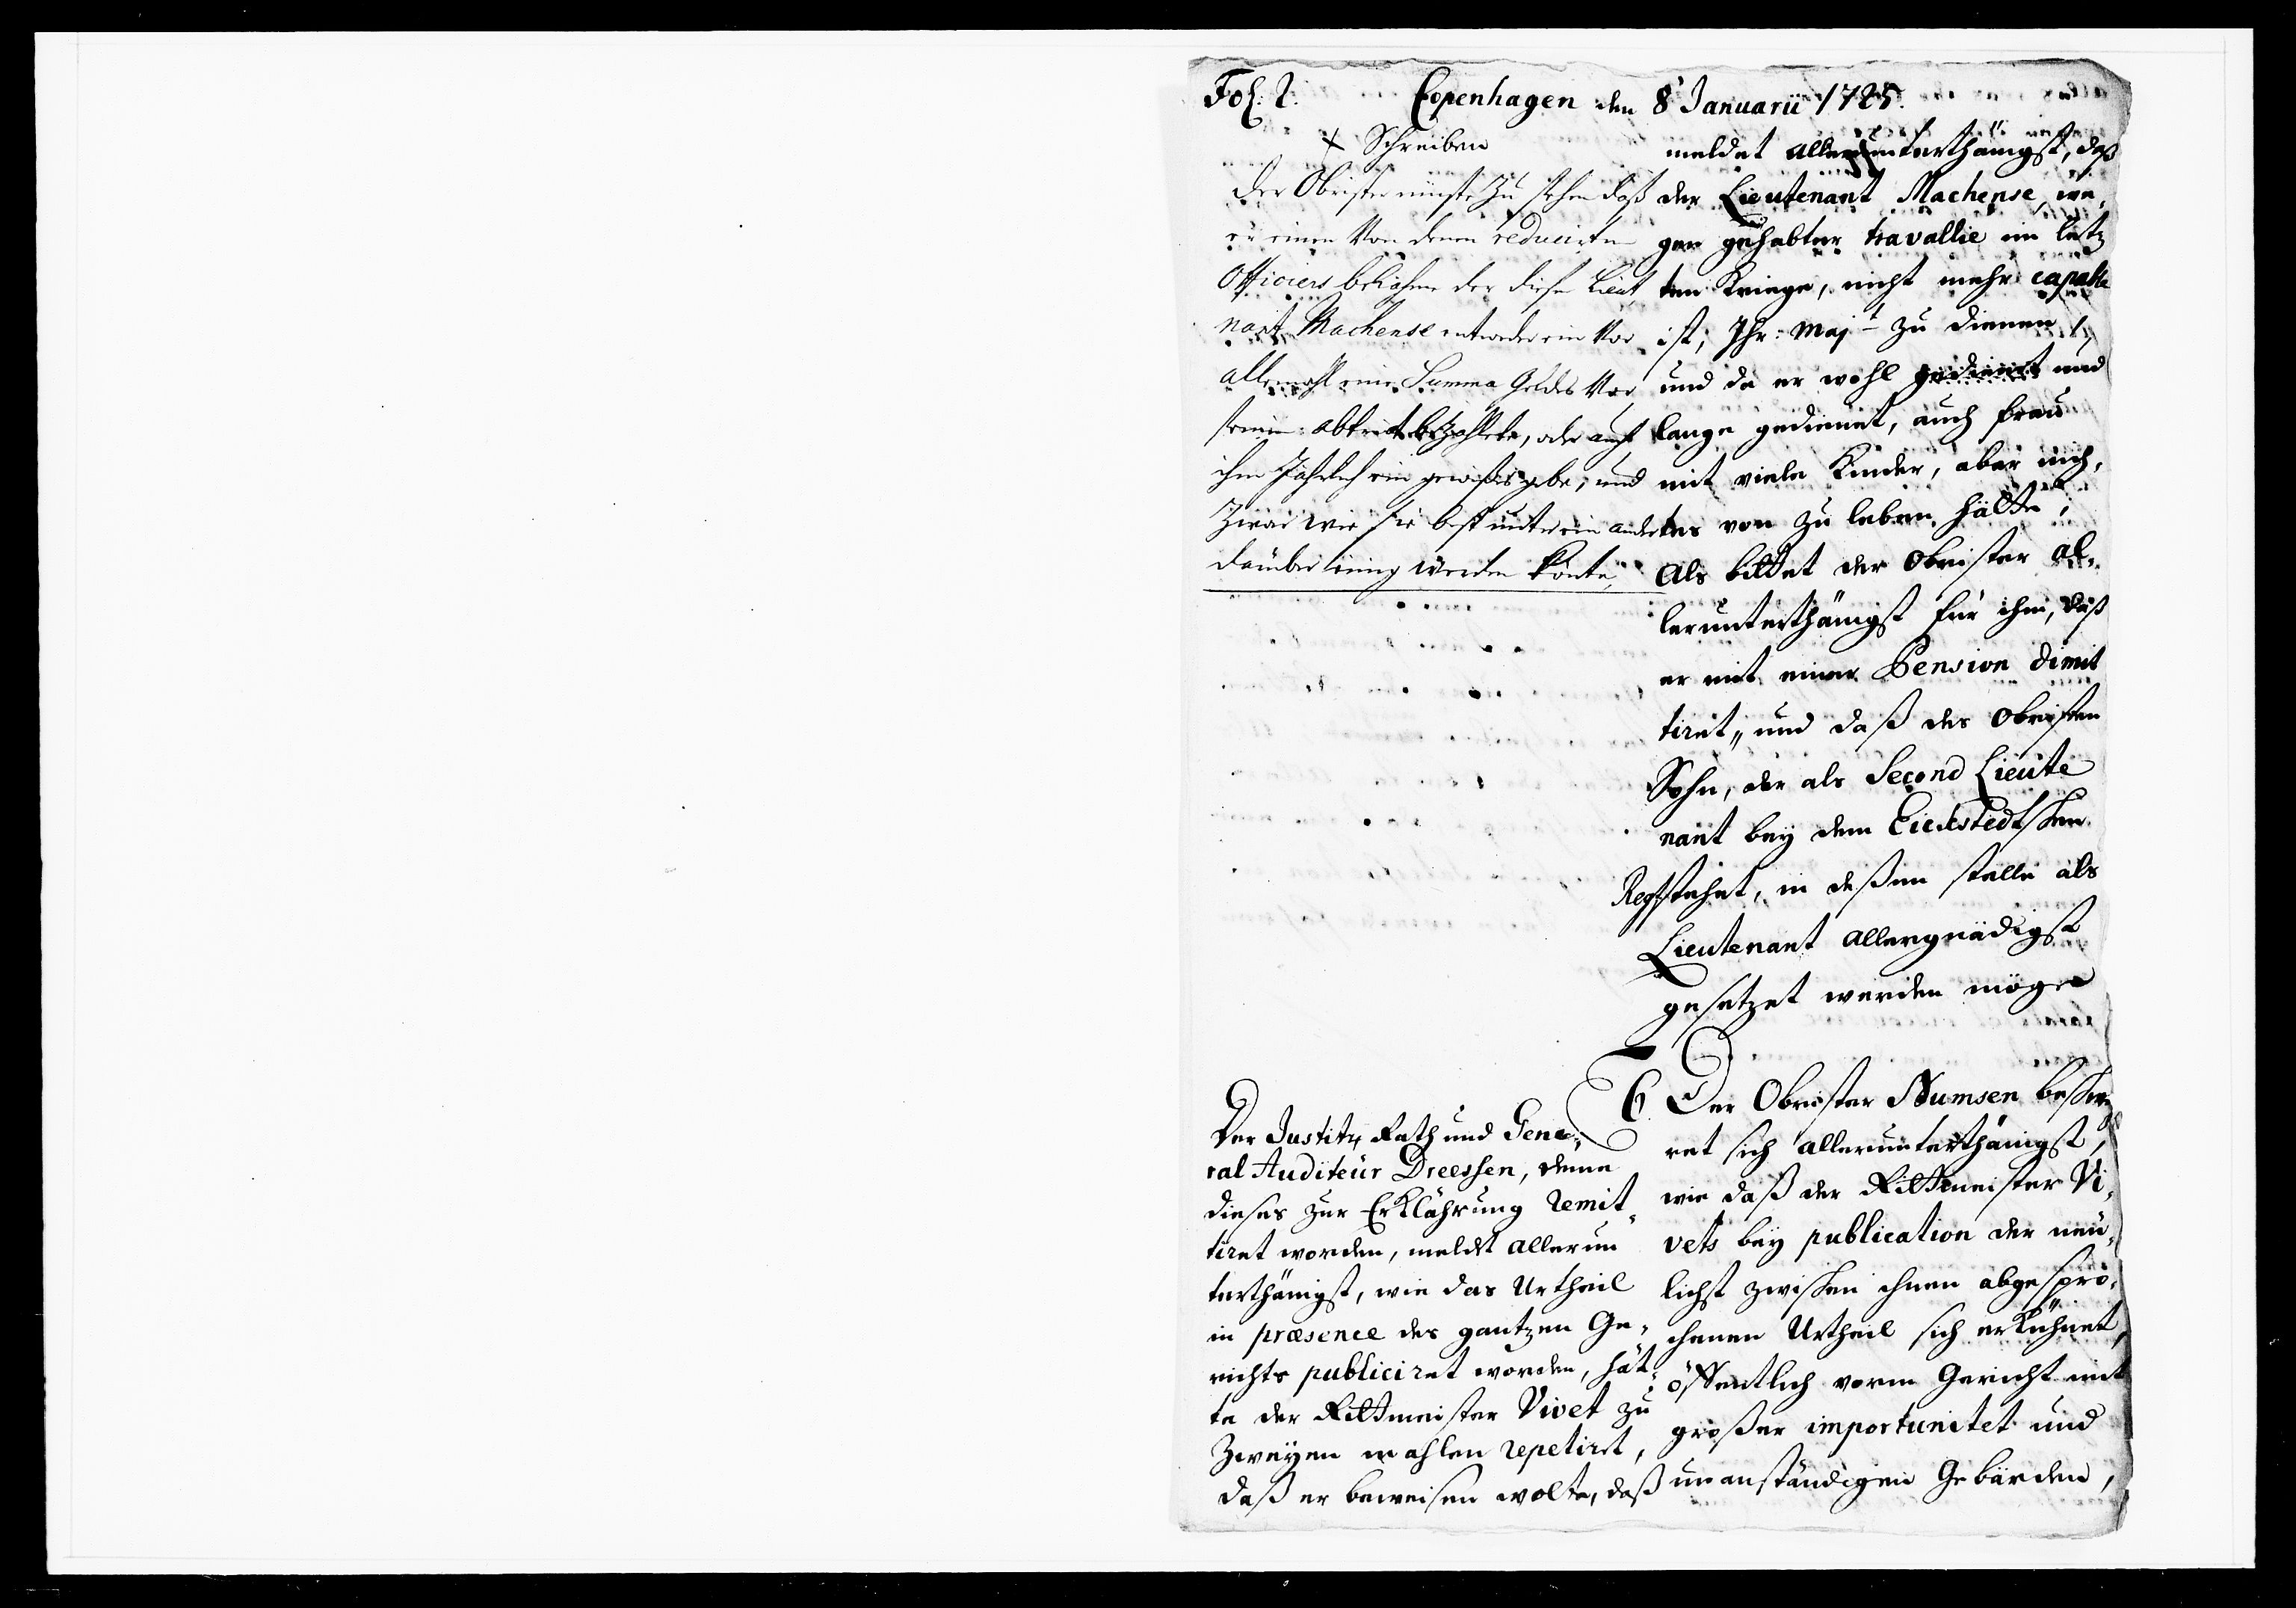 Fol: 2. Copenhagen den 8 Januarii 1725.
x Schreiben
Der Obrister müste zu sehen daß
er einen von denen reducirten
Officiers bekähme der diesen Lieut,
nant Machense entweder ein vor
allemahl eine Summa Geldes vor
seinen abtrit bezahlete, oder auch
ihm Jährlich ein gewißes gebe, und
zwar wie sie best unter ein ander
darüber einig werden könte,
meldet allerunterthänigst, daß
der Lieutenant Machense, we,
gen gehabter travallie im letz
ten Kriege, nicht mehr capable
ist, Ihr: Majt zu dienen,
und da er wohl gedienet und
lange gedienet, auch Frau
mit viele Kinder, aber nich,
tes von zu leben hätte;
Als bittet der Obrister al,
lerunterthänigst für ihm, daß
er mit einer Pension dimit
tiret, und daß des Obristen
Sohn, der als Second Lieute
nant bey dem Eickstedtschen
Regt stehet, in deßen stelle als
Lieutenant allergnädigst
gesetzet werden möge
Der Justitz Rath und Gene,
ral Auditeur Dreessen, deme
dieses zur Erklährung remit,
tiret worden, meldet allerun
terthänigst, wie das Urtheil
in præsence des gantzen Ge,
richts publiciret worden, hät,
te der Rittmeister Vivet zu
Zweyen mahlen repetiret,
daß er beweisen wolte, daß
6. Der Obrister Numsen beschwe,
ret sich allerunterthänigst,
wie daß der Rittmeister Vi,
vets bey publication der neu,
lichst zwischen ihnen abgespro,
chenen Urtheil sich erkühnet,
öffentlich vorm Gericht mit
großer importunitet und
unanständigen Gebärden,